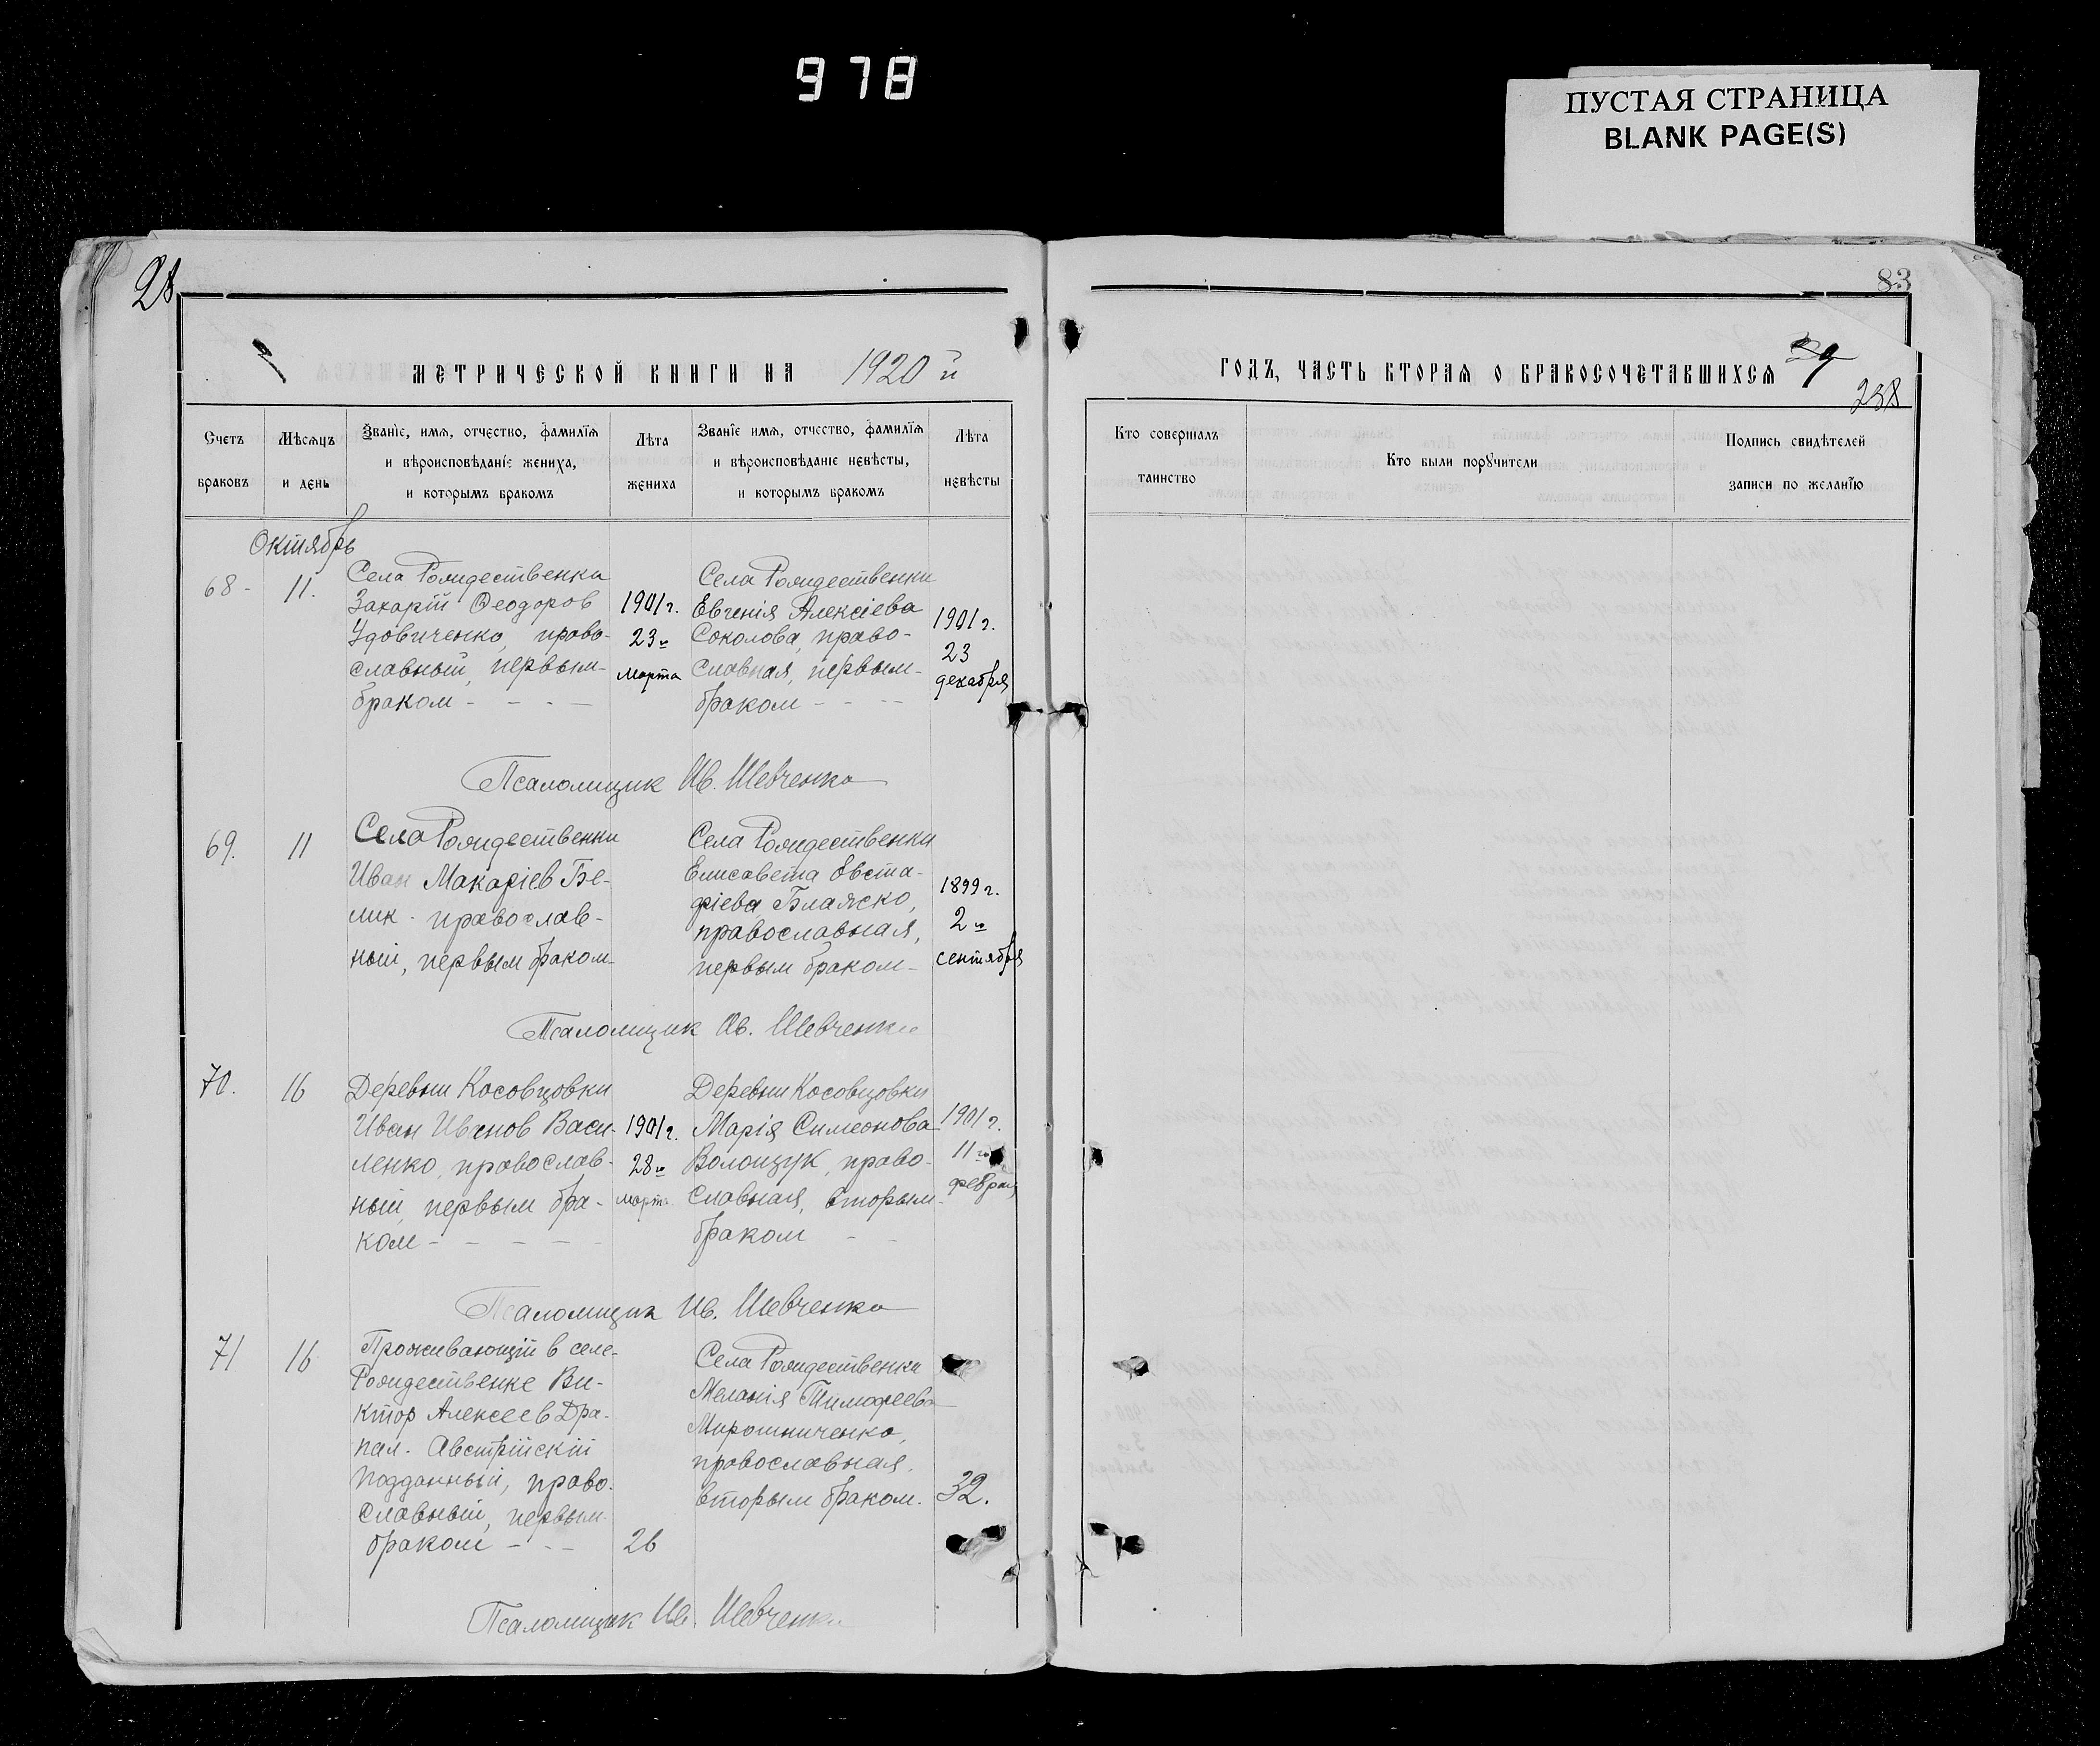 978
ПУСТАЯ СТРАНИЦА
BLANK PAGE(S)
28
83
МЕТРИЧЕСКОЙ КНИГИ НА 1920 й
ГОДЪ, ЧАСТЬ ВТОРАѦ О БРАКОСОЧЕТАВШИХСѦ
29
238
Счетъ
браковъ
Мѣсѧцъ
и день
Званїе, имѧ, отчество, фамилїѧ
и вѣроисповѣданїе жениха,
и которымъ бракомъ
Лѣта
жениха
Званїе имѧ, отчство, фамилїѧ
и вѣроисповѣданїе невѣсты,
и которымъ бракомъ
Лѣта
невѣсты
Кто совершалъ
таинство
Кто были порꙋчители
Подпись свидѣтелей
записи по желанїю
Октябрь
68-
11.
Села Рождественки
Захарій Ѳеодоров
Удовиченко, право-
славный, первым
браком - - - -
1901 г.
23го
марта
Села Рождественки
Евгенія Алексіева
Соколова, право-
славная, первым-
браком - - - -
1901 г.
23
декабря
Псаломщик Ив. Шевченко
69.
11
Села Рождественки
Иван Макаріев Бе-
лик - православ-
ный, первым браком-
Села Рождественки
Елисавета Евста-
фіева Блажко,
православная,
первым браком-
1899 г.
2го
сентября
Псаломщик Ив. Шевченко
70.
16
Деревни Косовцовки
Иван Иванов Васи-
ленко, православ-
ный, первым бра-
ком - - - - -
1901 г.
28го
марта
Деревни Косовцовки
Марія Симеонова
Волощук, право-
славная, вторым-
браком - -
1901 г.
11го
февраля
Псаломщик Ив. Шевченко
71
16
Проживающій в селе-
Рождественке Ви-
ктор Алексеев Дра-
пал - Австрійскій
подданный, право-
славный, первым-
браком - - -
26
Села Рождественки
Меланія Тимофеева
Мирошниченко,
православная,
вторым браком.
32.
Псаломщик Ив. Шевченко